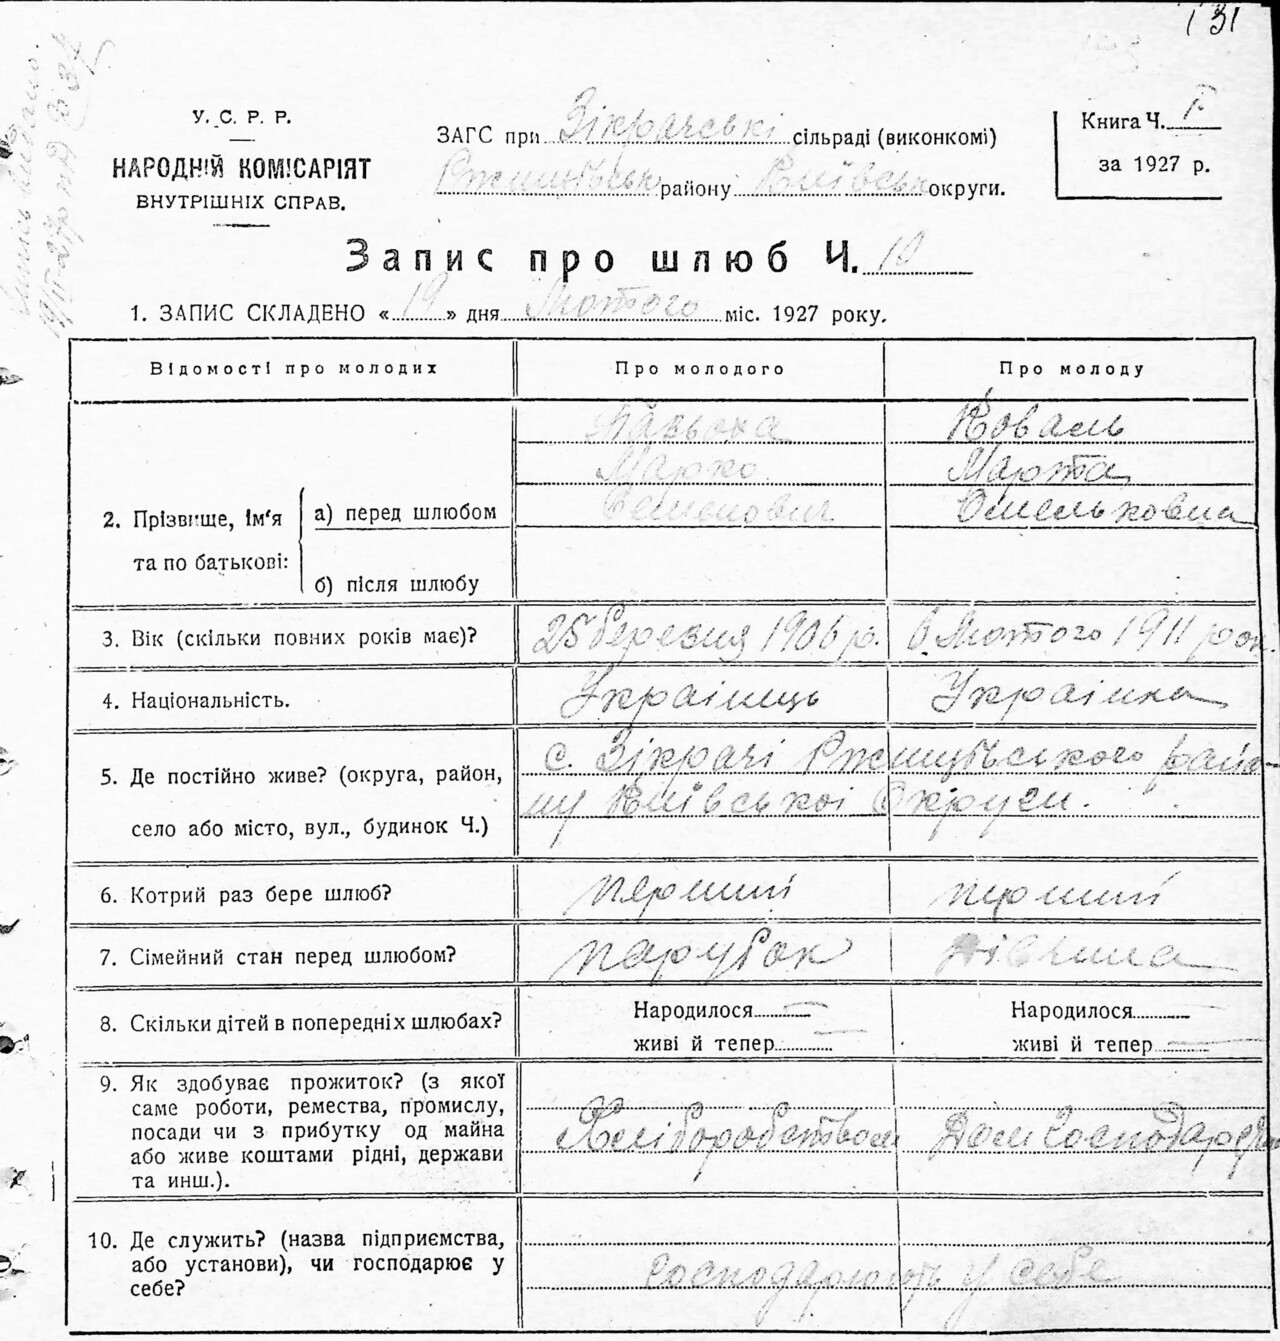 131
У. С. Р. Р.
НАРОДНІЙ КОМІСАРІЯТ
ВНУТРІШНІХ СПРАВ.
ЗАГС при Зікрачські сільраді (виконкомі)
Ржищівськ району Київськ округи.
Книга Ч. I
за 1927 р.
Запис про шлюб Ч. 10
1. ЗАПИС СКЛАДЕНО « 19 » дня Лютого міс. 1927 року.
Відомості про молодих
Про молодого
Про молоду
2. Прізвище, ім'я та по батькові:
а) перед шлюбом
Коваль
Марко
Марта
Семенович
Омельковна
б) після шлюбу
3. Вік (скільки повних років має)?
25 березня 1906 р.
6 Лютого 1911 рок.
4. Національність.
Українець
Українка
5. Де постійно живе? (округа, район,
село або місто, вул., будинок Ч.)
с. Зікрачі Ржищівського райо-
ну Київської Округи.
6. Котрий раз бере шлюб?
перший
перший
7. Сімейний стан перед шлюбом?
парубок
дівчина
8. Скільки дітей в попередніх шлюбах?
Народилося —
живі й тепер —
Народилося —
живі й тепер —
9. Як здобуває прожиток? (з якої
саме роботи, ремества, промислу,
посади чи з прибутку од майна
або живе коштами рідні, держави
та инш.).
Хліборобством
Дом Господарств
10. Де служить? (назва підприємства,
або установи), чи господарює у
себе?
Господарюють у себе